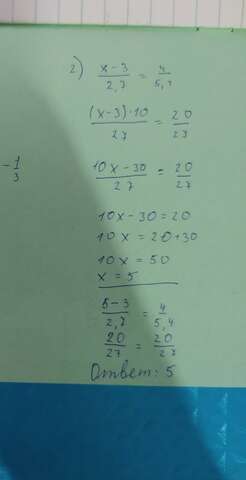 2) (x-3)/2,7 = 4/5,4
((x-3)·10)/27 = 20/27
-1/3
(10x-30)/27 = 20/27
10x-30=20
10x=20+30
10x=50
x=5
(5-3)/2,7 = 4/5,4
20/27 = 20/27
Ответ: 5